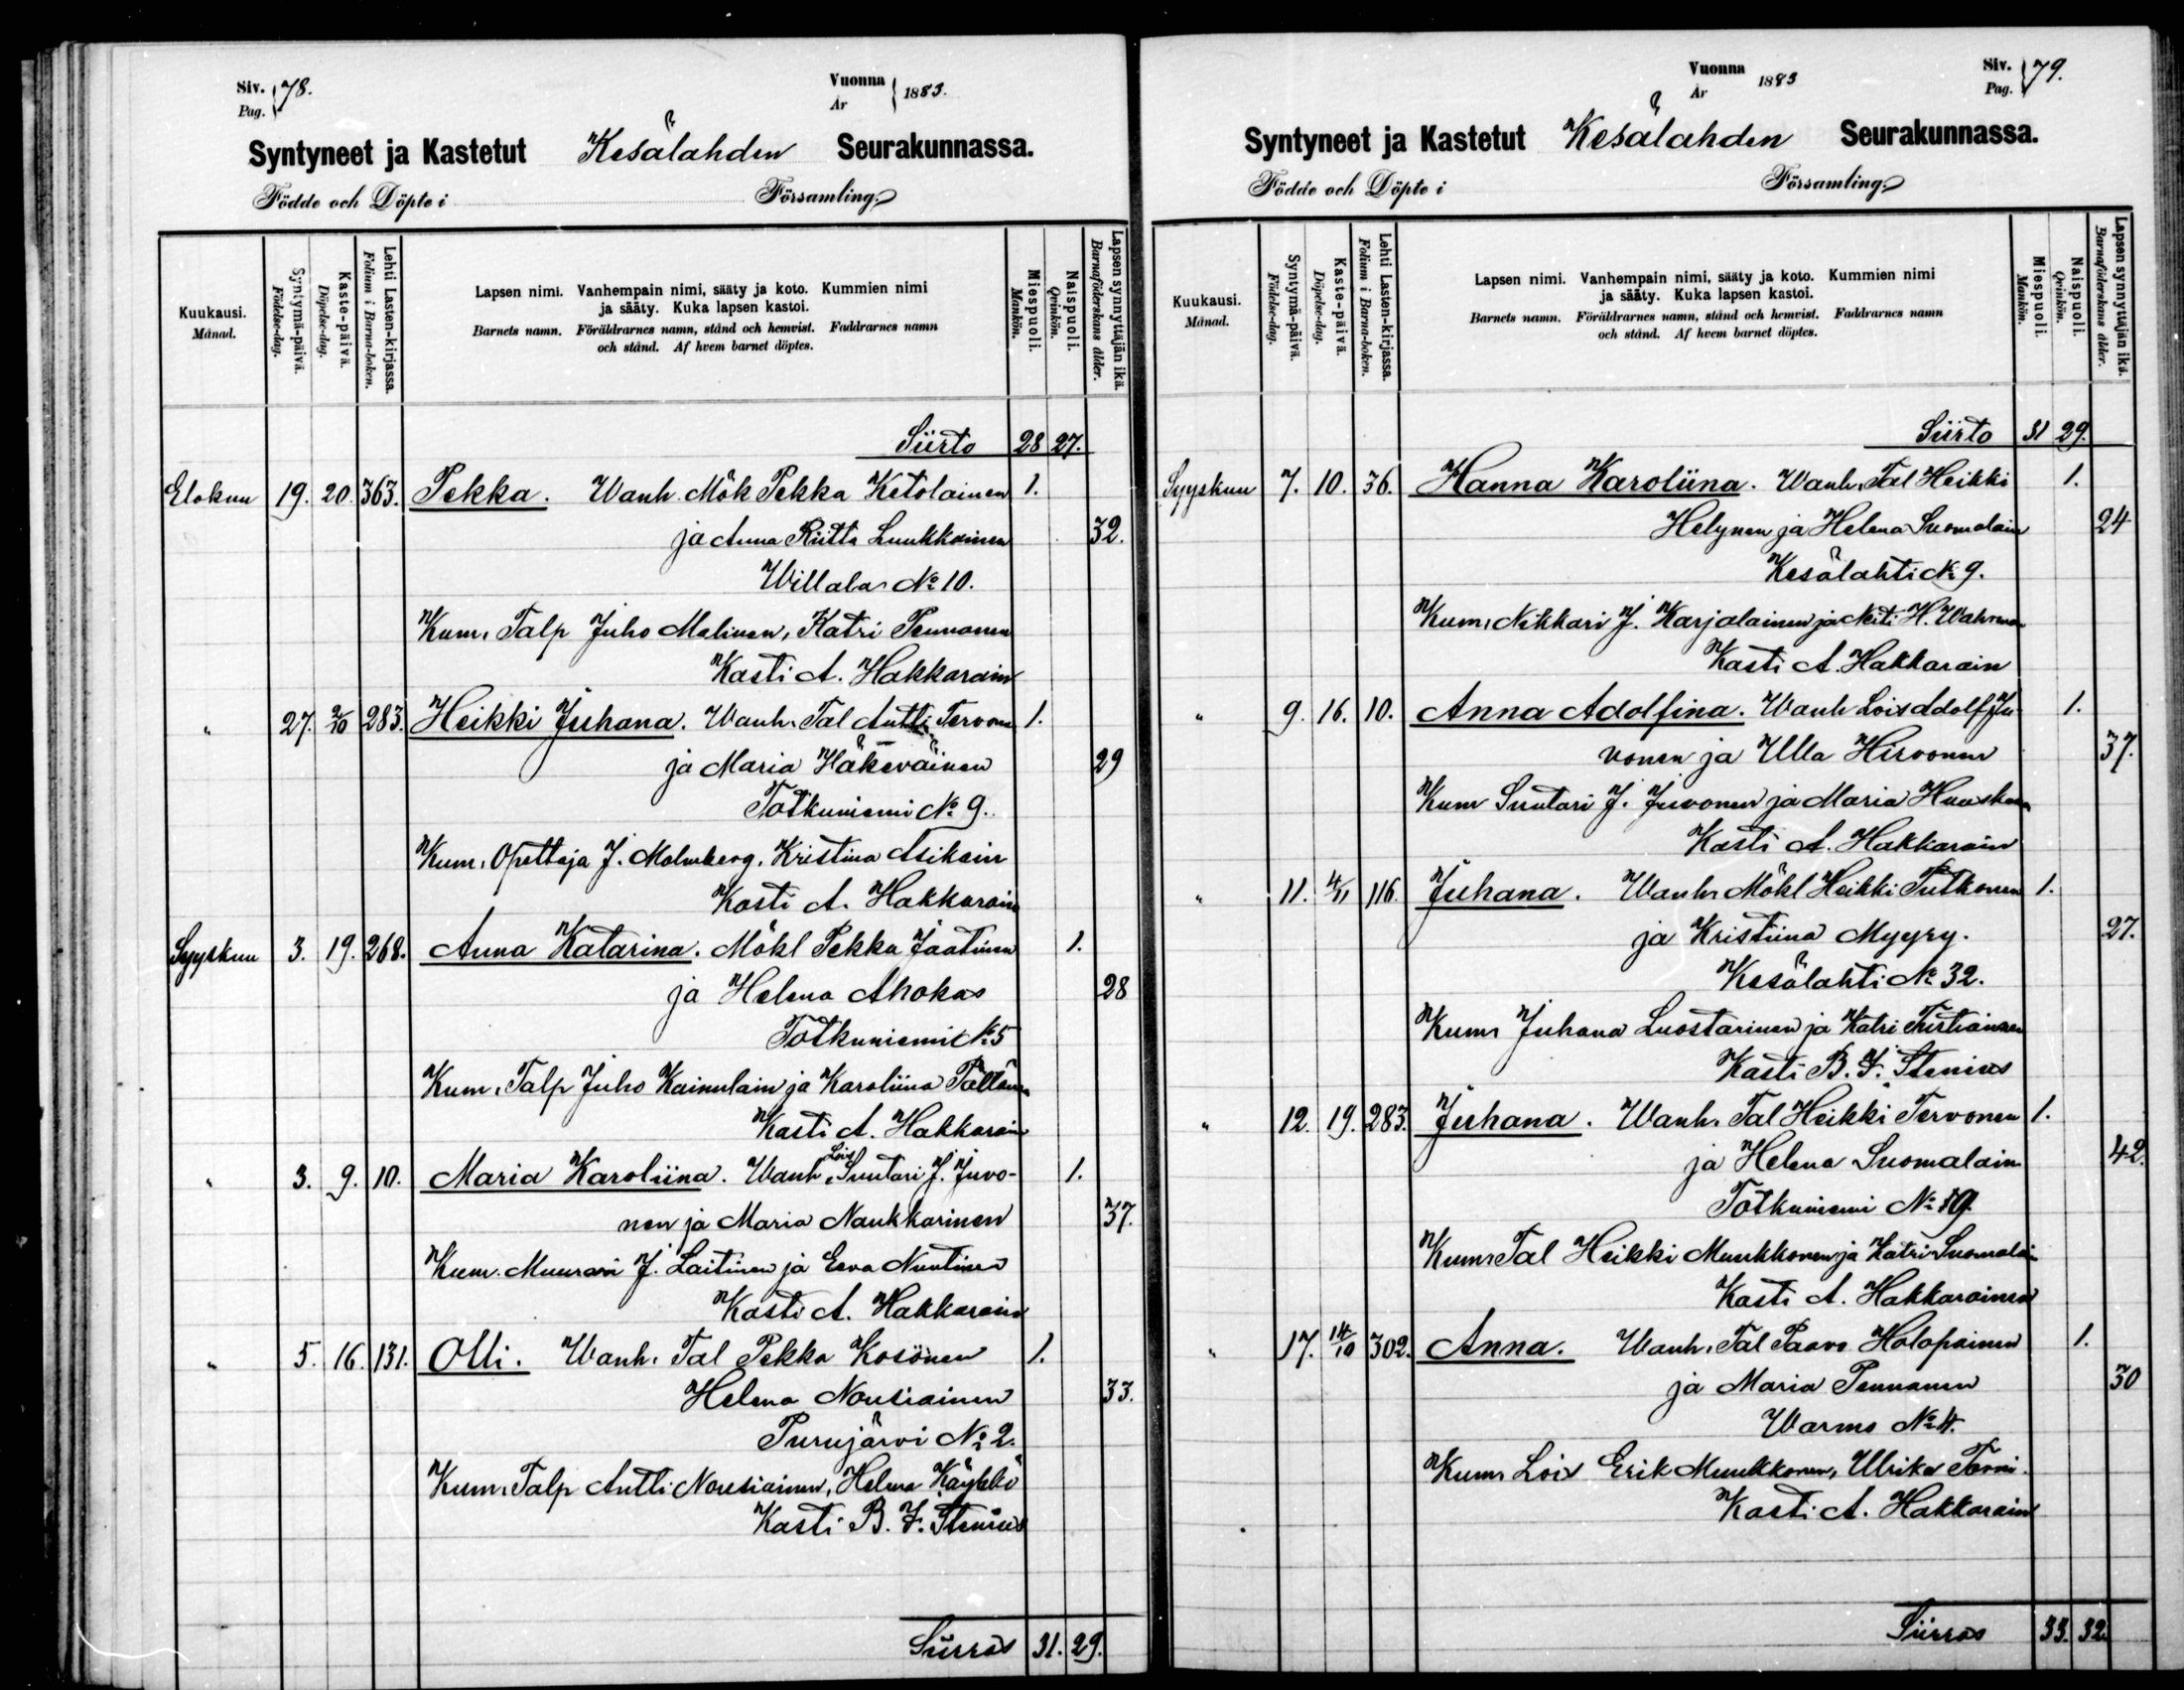 Siv. 78.
Pag.
Vuonna 1883.
År
Syntyneet ja Kastetut Kesälahden Seurakunnassa.
Födde och Döpte i Församling.
Kuukausi.
Månad.
Syntymä-päivä.
Födelse-dag.
Kaste-päivä.
Döpelse-dag.
Lehti Lasten-kirjassa.
Folium i Barna-boken.
Lapsen nimi. Vanhempain nimi, sääty ja koto. Kummien nimi
ja sääty. Kuka lapsen kastoi.
Barnets namn. Föräldrarnes namn, stånd och hemvist. Faddrarnes namn
och stånd. Af hvem barnet döptes.
Miespuoli.
Mankön.
Naispuoli.
Qvinkön.
Lapsen synnyttäjän ikä.
Barnaföderskans ålder.
Siirto 28 27.
Elokuu 19. 20. 363. Pekka. Wanh. Mök Pekka Ketolainen 1.
ja Anna Riitta Luukkainen 32.
Willala No 10.
Kum. Talp Juho Malinen, Katri Pennanen
Kasti A. Hakkarain
" 27. 2/10 283. Heikki Juhana. Wanh. Tal Antti Tervonen 1.
ja Maria Häkeväinen 29
Totkuniemi No 9.
Kum. Opettaja J. Malmberg, Kristina Asikain
Kasti A. Hakkarain
Syyskuu 3. 19. 268. Anna Katarina. Mökl Pekka Jaatinen 1.
ja Helena Ahokas 28
Totkuniemi No 5
Kum. Talp Juho Kainulain ja Karoliina
Kasti A. Hakkarain
" 3. 9. 10. Maria Karoliina. Wanh. Lois Suutari J. Juvo- 1.
nen ja Maria Naukkarinen 37.
Kum. Muurari J. Laitinen ja Eeva Nuutinen
Kasti A. Hakkarain
" 5. 16. 131. Olli. Wanh. Tal Pekka Kosonen 1.
Helena Nousiainen 33.
Purujärvi No 2.
Kum. Talp Antti Nousiainen, Helena Käyhkö
Kasti B. F. Stenius
Siirros 31. 29.
Vuonna 1883
År
Siv. 79.
Pag.
Syntyneet ja Kastetut Kesälahden Seurakunnassa.
Födde och Döpte i Församling.
Kuukausi.
Månad.
Syntymä-päivä.
Födelse-dag.
Kaste-päivä.
Döpelse-dag.
Lehti Lasten-kirjassa.
Folium i Barna-boken.
Lapsen nimi. Vanhempain nimi, sääty ja koto. Kummien nimi
ja sääty. Kuka lapsen kastoi.
Barnets namn. Föräldrarnes namn, stånd och hemvist. Faddrarnes namn
och stånd. Af hvem barnet döptes.
Miespuoli.
Mankön.
Naispuoli.
Qvinkön.
Lapsen synnyttäjän ikä.
Barnaföderskans ålder.
Siirto 31 29.
Syyskuu 7. 10. 36. Hanna Karoliina. Wanh. Tal Heikki 1.
Helynen ja Helena Suomalain 24
Kesälahti No 9.
Kum. Nikkari J. Karjalainen ja Neiti H.
Kasti A. Hakkarain
" 9. 16. 10. Anna Adolfina. Wanh Lois Adolf Ju- 1.
vonen ja Ulla Hirvonen 37.
Kum Suutari J. Juvonen ja Maria
Kasti A. Hakkarain
" 11. 4/11 116. Juhana. Wanh. Mökl Heikki Putkonen 1.
ja Kristiina Myyry. 27.
Kesälahti No 32.
Kum. Juhana Luostarinen ja Katri
Kasti B. F. Stenius
" 12. 19. 283. Juhana. Wanh. Tal Heikki Tervonen 1.
ja Helena Suomalain 42.
Totkuniemi No 9.
Kum. Tal Heikki Muukkonen ja Katri Suomalain
Kasti A. Hakkarainen
" 17. 14/10 302. Anna. Wanh. Tal Paavo Holopainen 1.
ja Maria Pennanen 30
Warmo No 4.
Kum. Lois Erik Muukkonen, Ulrika
Kasti A. Hakkarain
Siirros 33. 32.